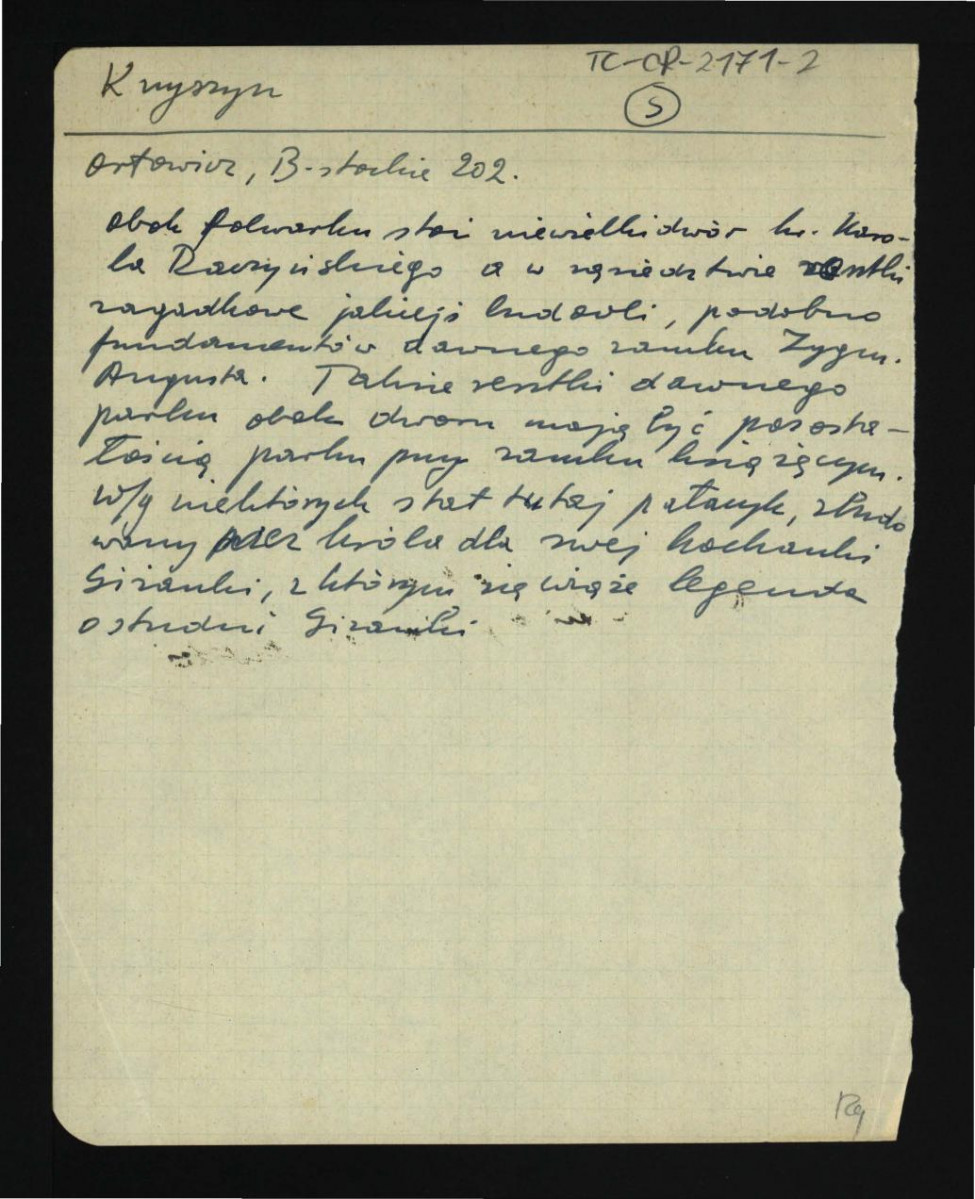 Knyszyn
TC-CP-2171-2
5
Orłowicz, B-stockie 202.
obok folwarku stoi niewielki dwór hr. Karo-
la Raczyńskiego a w sąsiedztwie resztki
zagadkowe jakiejś budowli, podobno
fundamentów dawnego zamku Zygm.
Augusta. Także resztki dawnego
parku obok dworu mają być pozosta-
łością parku przy zamku książęcym.
W/g niektórych stał tutaj pałacyk, zbudo
wany przez króla dla swej kochanki
Giżanki, z którym się wiąże legenda
o studni Giżanki